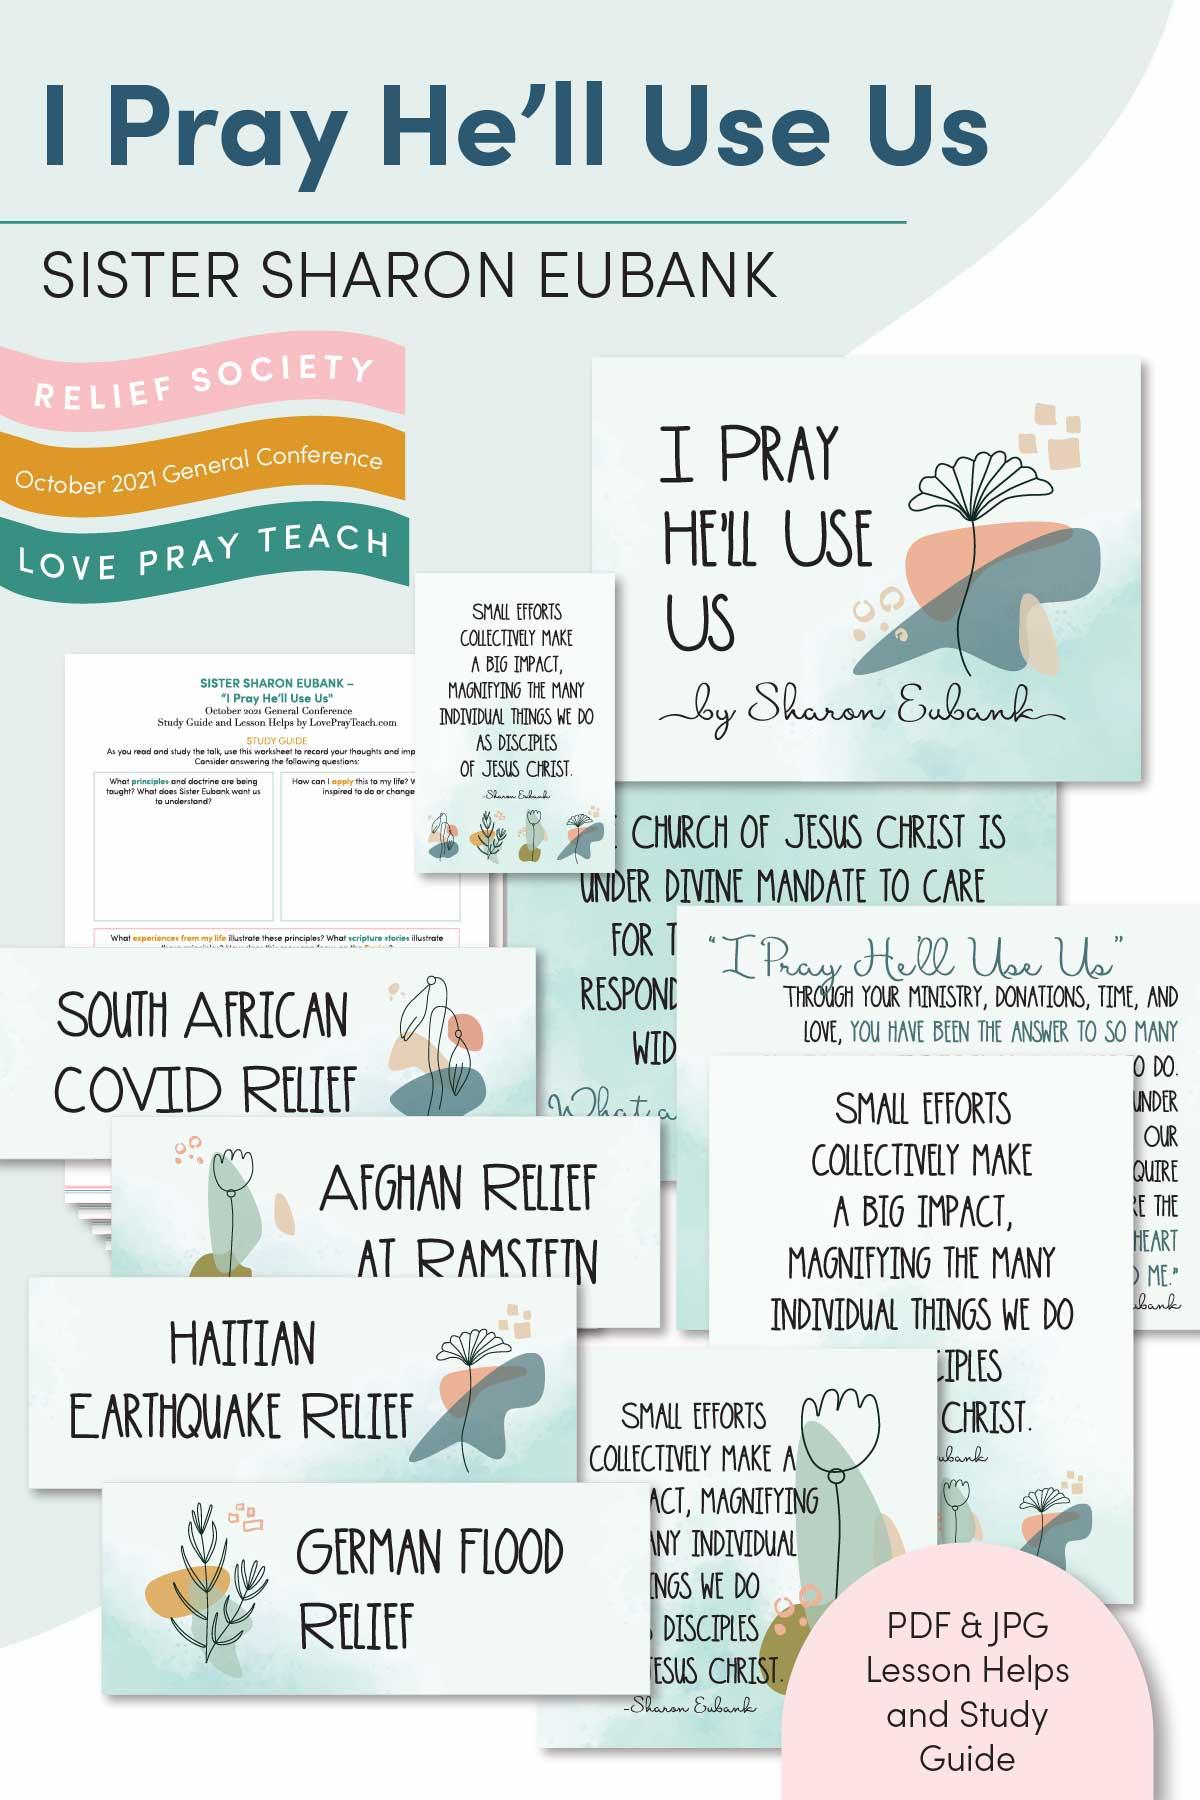 I Pray He'll Use Us
SISTER SHARON EUBANK
RELIEF SOCIETY
October 2021 General Conference
LOVE PRAY TEACH
I PRAY
HE'LL USE
US
by Sharon Eubank
SMALL EFFORTS
COLLECTIVELY MAKE
A BIG IMPACT,
MAGNIFYING THE MANY
INDIVIDUAL THINGS WE DO
AS DISCIPLES
OF JESUS CHRIST.
-Sharon Eubank
SISTER SHARON EUBANK –
"I Pray He'll Use Us"
October 2021 General Conference
Study Guide and Lesson Helps by LovePrayTeach.com
STUDY GUIDE
As you read and study the talk, use this worksheet to record your thoughts and imp
Consider answering the following questions:
What principles and doctrine are being
taught? What does Sister Eubank want us
to understand?
How can I apply this to my life? W
inspired to do or change
What experiences from my life illustrate these principles? What scripture stories illustrate
CHURCH OF JESUS CHRIST IS
UNDER DIVINE MANDATE TO CARE
FOR T
RESPOND
WID
What a
"I Pray He'll Use Us"
THROUGH YOUR MINISTRY, DONATIONS, TIME, AND
LOVE, YOU HAVE BEEN THE ANSWER TO SO MANY
O DO.
UNDER
OUR
QUIRE
RE THE
HEART
O ME."
ubank
SOUTH AFRICAN
COVID RELIEF
AFGHAN RELIEF
AT RAMSTEIN
HAITIAN
EARTHQUAKE RELIEF
GERMAN FLOOD
RELIEF
SMALL EFFORTS
COLLECTIVELY MAKE
A BIG IMPACT,
MAGNIFYING THE MANY
INDIVIDUAL THINGS WE DO
CIPLES
CHRIST.
ubank
SMALL EFFORTS
COLLECTIVELY MAKE A
ACT, MAGNIFYING
ANY INDIVIDUAL
NGS WE DO
DISCIPLES
ESUS CHRIST.
-Sharon Eubank
PDF & JPG
Lesson Helps
and Study
Guide